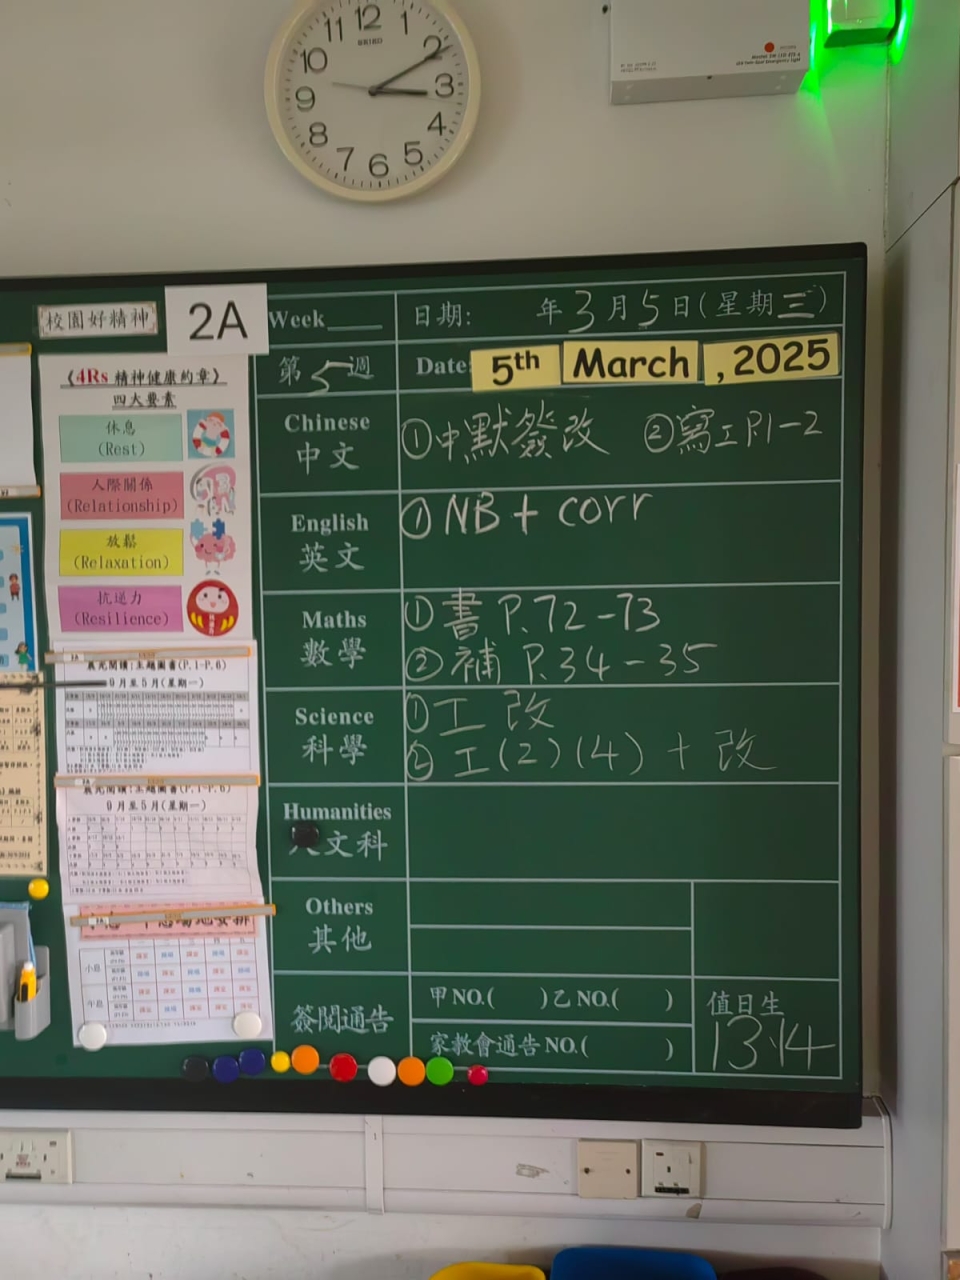 12 1 2 3 4 5 6 7 8 9 10 11
SEIKO
校園好精神
2A
Week
日期: 年3月5日(星期三)
第5週
Date: 5th March, 2025
《4Rs 精神健康約章》
四大要素
休息
(Rest)
人際關係
(Relationship)
放鬆
(Relaxation)
抗逆力
(Resilience)
Chinese
中文
①中默簽改 ②寫工P.1-2
English
英文
①NB + corr
Maths
數學
①書 P.72-73
②補 P.34-35
Science
科學
①工 改
②工(2)(4) + 改
Humanities
人文科
Others
其他
簽閱通告
甲NO.( )乙NO.( )
家教會通告NO.( )
值日生
13.14
晨光閱讀:主題圖書(P.1-P.6)
9月至5月(星期一)
晨光閱讀:主題圖書(P.1-P.6)
9月至5月(星期一)
小息
午息